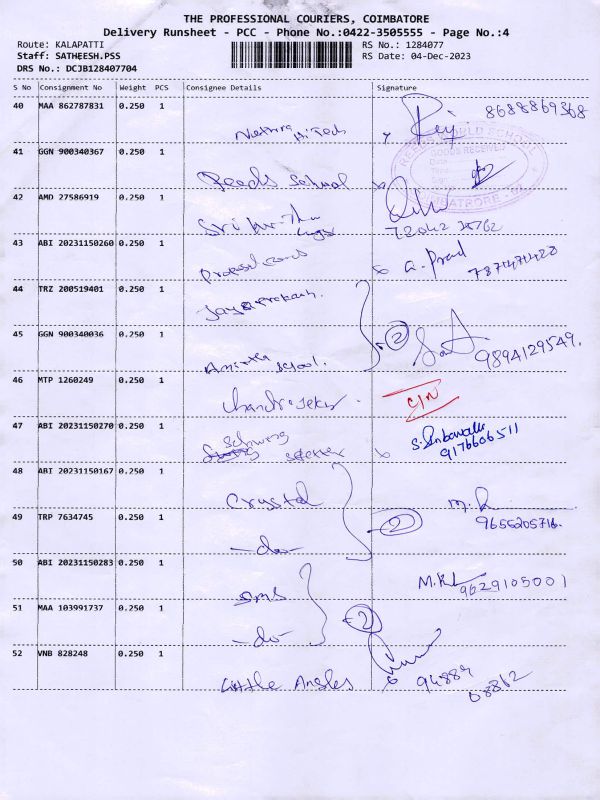 THE PROFESSIONAL COURIERS, COIMBATORE
Delivery Runsheet - PCC - Phone No.:0422-3505555 - Page No.:4
Route: KALAPATTI
RS No.: 1284077
Staff: SATHEESH.PSS
RS Date: 04-Dec-2023
DRS No.: DCJB128407704
S No Consignment No Weight PCS Consignee Details Signature
40 MAA 862787831 0.250 1
8688869368
41 GGN 900340367 0.250 1
GOODS RECEIVED
Reeds School
42 AMD 27586919 0.250 1
Sri
43 ABI 20231150260 0.250 1
a. Prad
7871471428
44 TRZ 200519401 0.250 1
Jaya Prakash.
45 GGN 900340036 0.250 1
2
9894129549.
School.
46 MTP 1260249 0.250 1
Chandrasekar.
C/N
47 ABI 20231150270 0.250 1
Schwing
Stetter
9176606511
48 ABI 20231150167 0.250 1
Crystal
M.
49 TRP 7634745 0.250 1
2
9655205716.
-do-
50 ABI 20231150283 0.250 1
M.
9629105001
SMS
51 MAA 103991737 0.250 1
2
-do-
52 VNB 828248 0.250 1
94889
08812
Little Angles